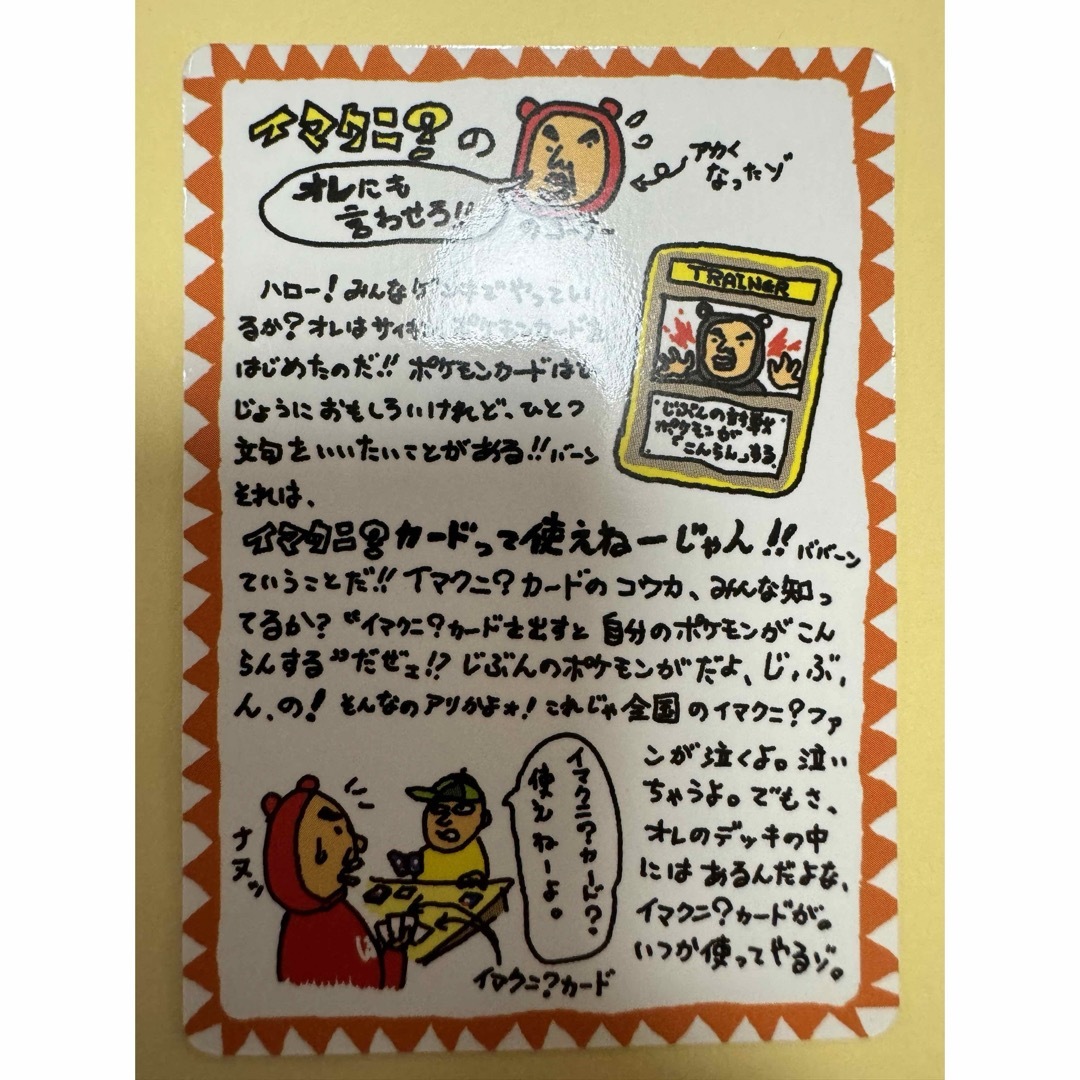 イマクニ?の
オレにも
言わせろ!!
のコーナー
アカく
なったゾ
TRAINER
じぶんの対戦
ポケモンが
「こんらん」する。
ハロー!みんなゲンキでやってい
るか?オレはサイキン ポケモンカードを
はじめたのだ!!ポケモンカードはひ
じょうにおもしろいけれど、ひとつ
文句をいいたいことがある!!バーン
それは、
イマクニ?カードって使えねーじゃん!!ババーン
ていうことだ!!イマクニ?カードのコウカ、みんな知っ
てるか?“イマクニ?カードを出すと自分のポケモンがこん
らんする”だぜェ!?じぶんのポケモンがだよ、じ、ぶ、
ん、の!そんなのアリかよォ!これじゃ全国のイマクニ?ファ
ンが泣くよ。泣い
ちゃうよ。でもさ、
オレのデッキの中
にはあるんだよな、
イマクニ?カードが。
いつか使ってやるゾ。
イマクニ?カード?
使えねーよ。
ナヌッ
イマクニ?カード